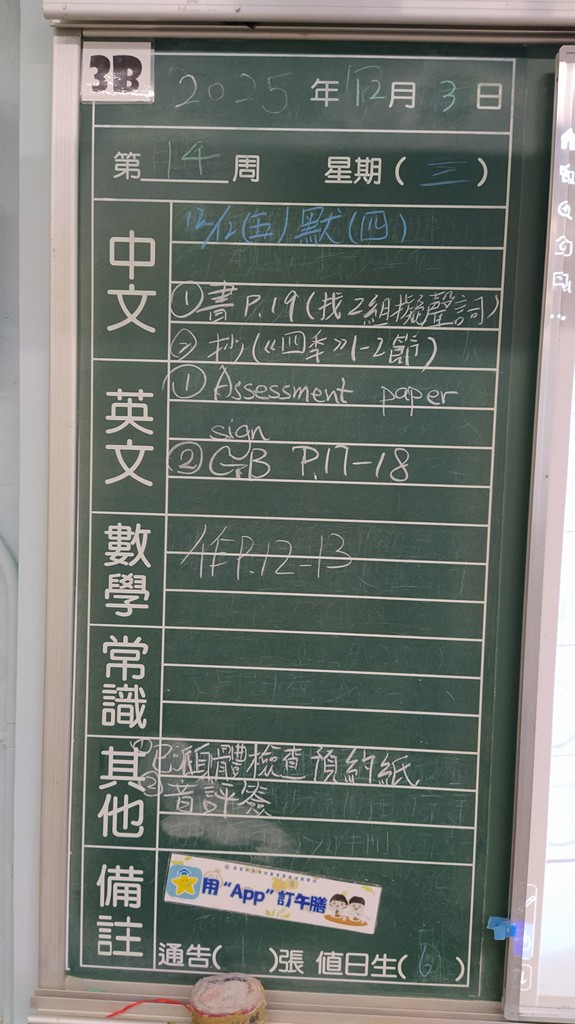 3B
2025年12月3日
第14周 星期(三)
中文
12/12(五)默(四)
①書P.19(找2組擬聲詞)
②抄(《四季》1-2節)
英文
① Assessment paper
sign
② GB P.17-18
數學
作P.12-13
常識
其他
①已派身體檢查預約紙
②音評簽
備註
用“App”訂午膳
通告( )張 值日生(6)